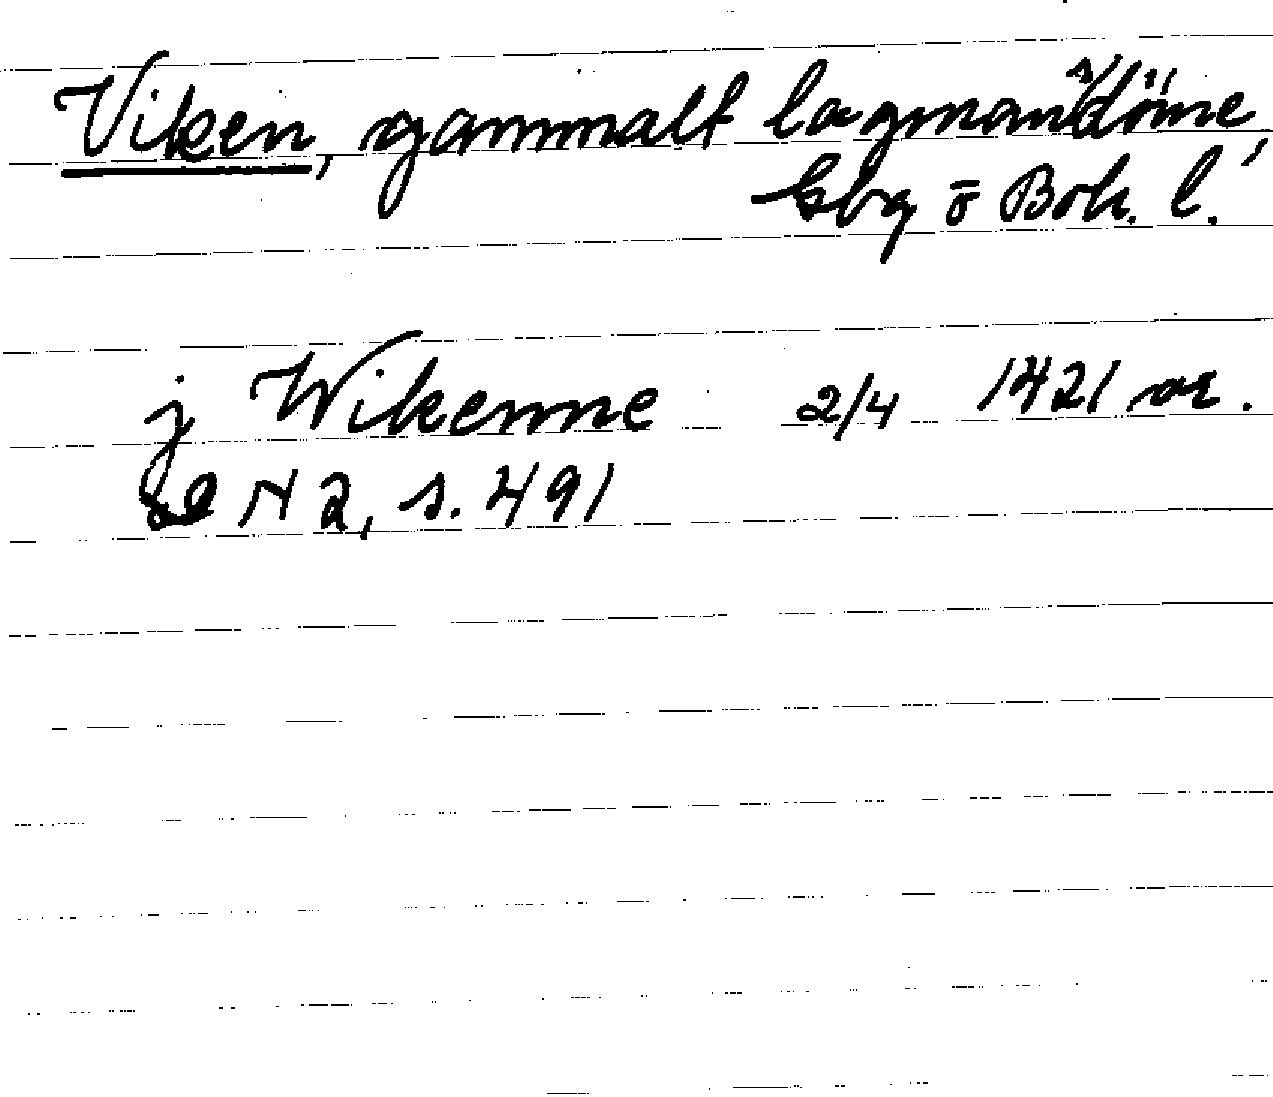 Viken, gammalt lagmansdöme,
Gbg o Boh. l.
j Wikenne 2/4 1421 or.
N 2, s. 491